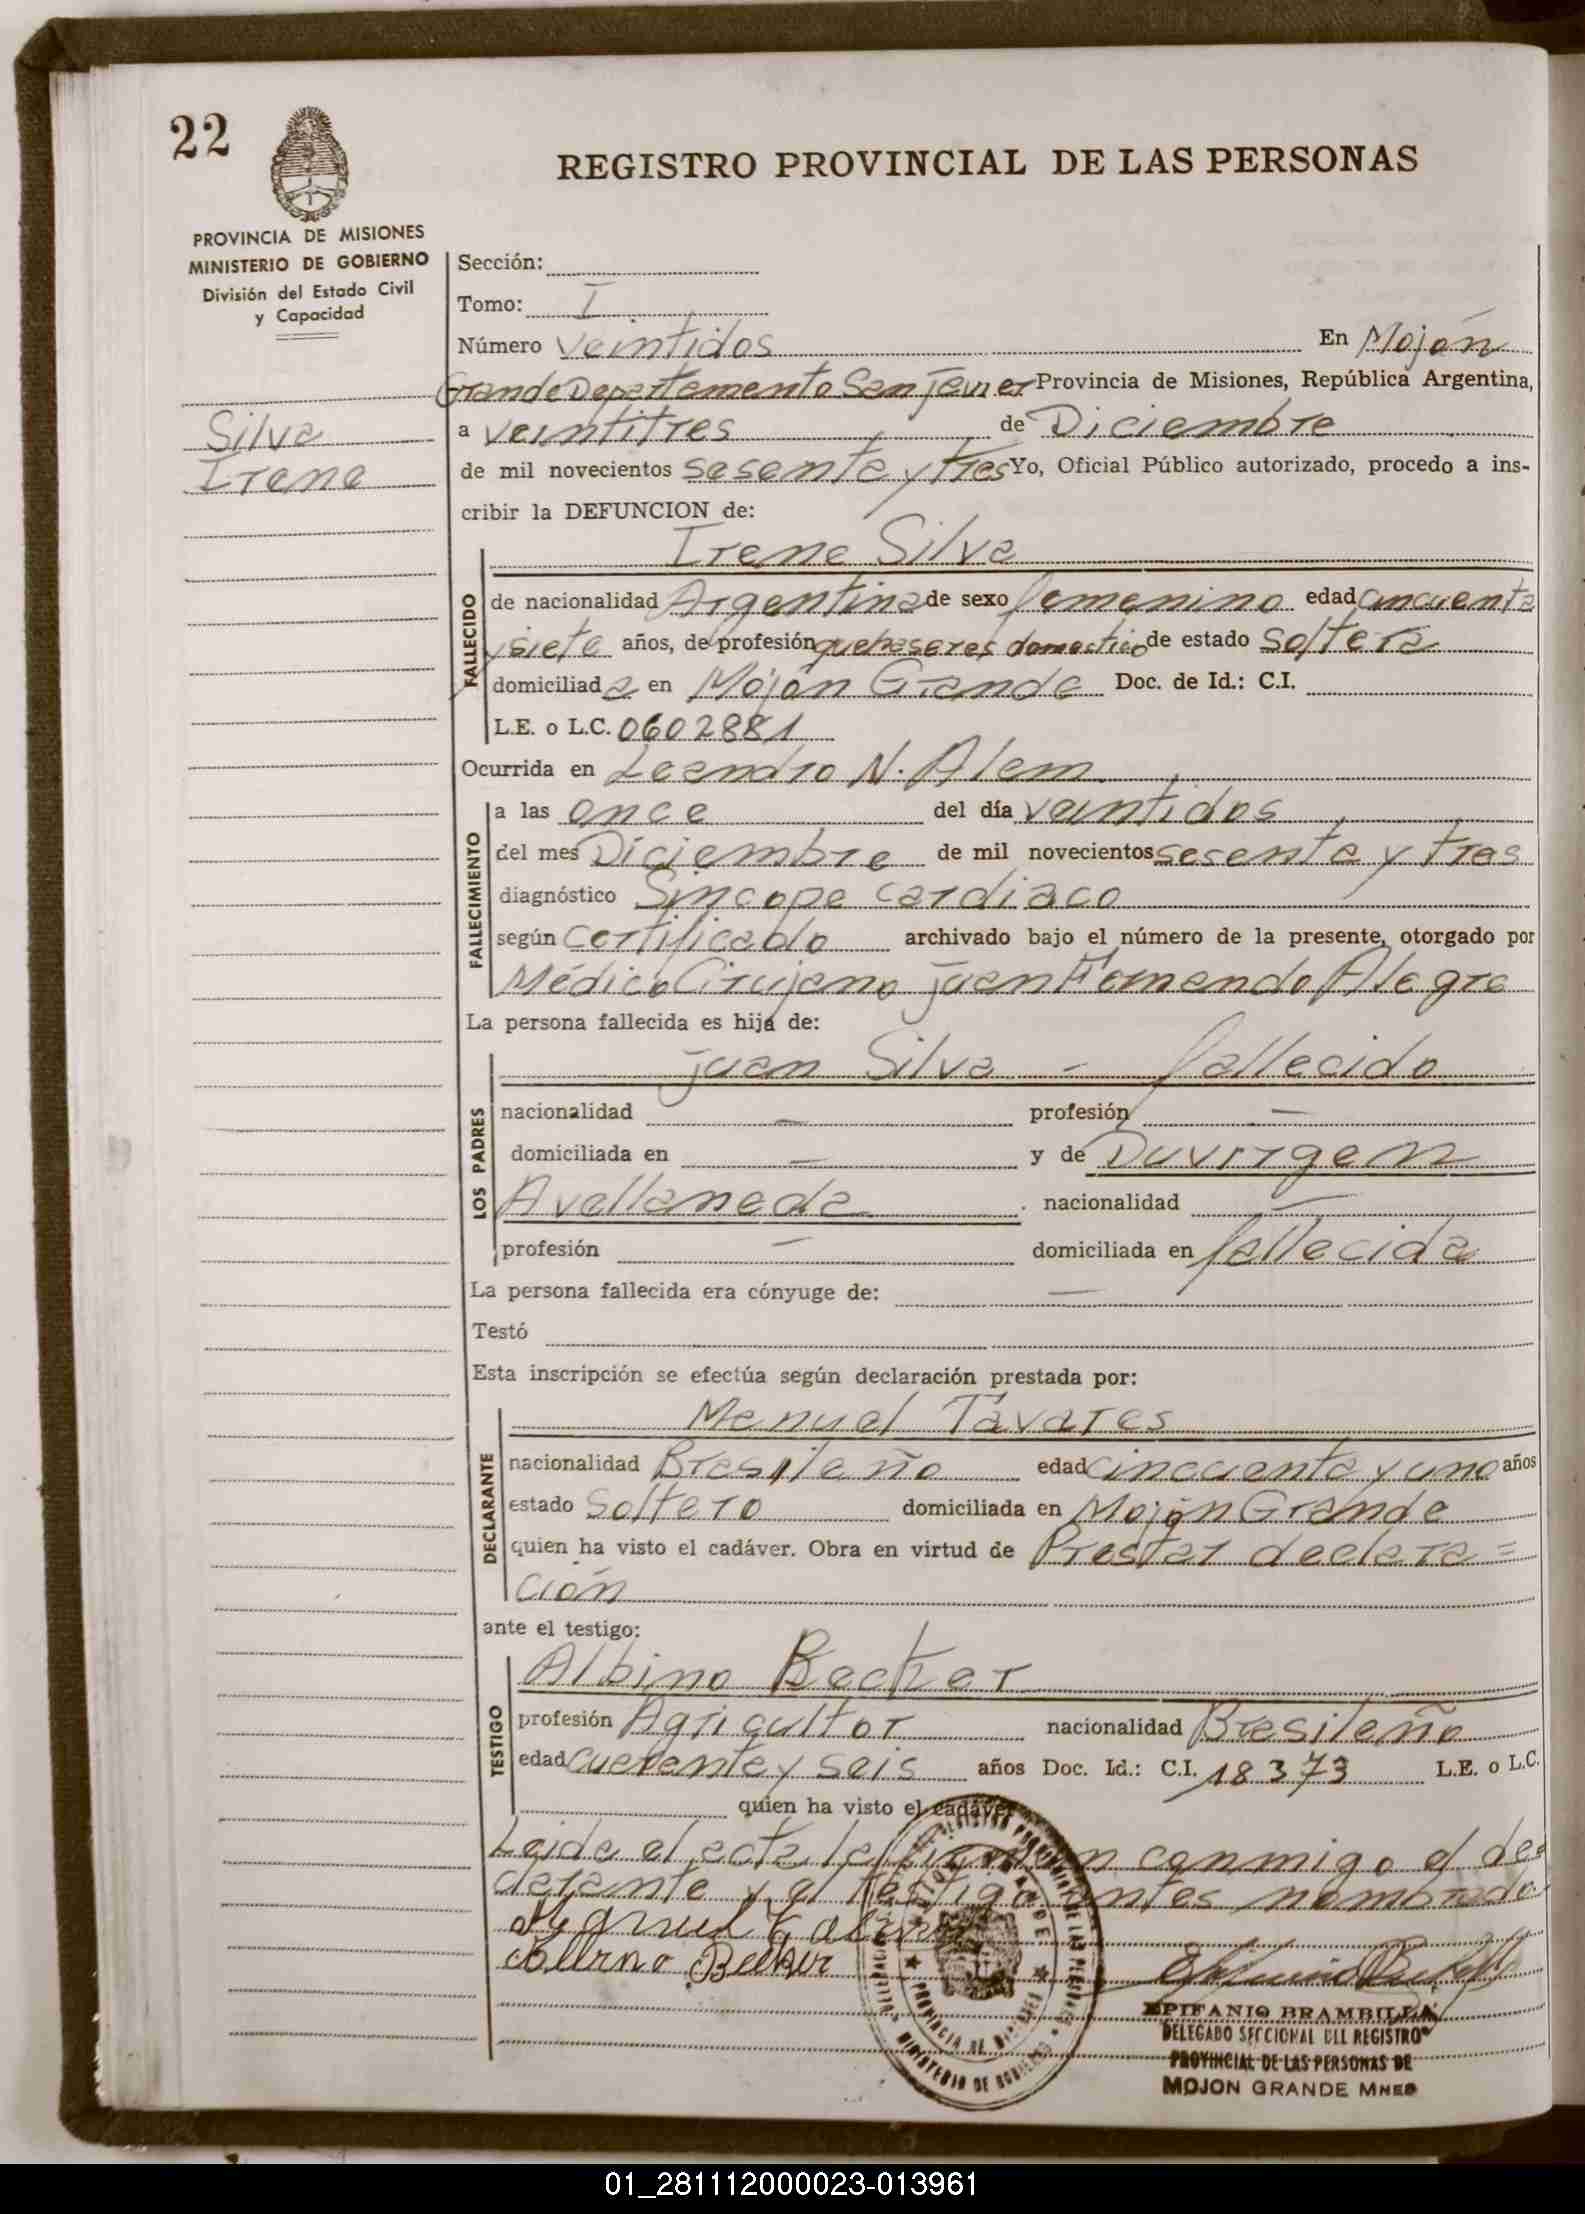 22
REGISTRO PROVINCIAL DE LAS PERSONAS
PROVINCIA DE MISIONES
MINISTERIO DE GOBIERNO
División del Estado Civil
y Capacidad
Silva
Irene
Sección:
Tomo: I
Número Veintidos En Mojón
Grande Departamento San Javier Provincia de Misiones, República Argentina,
a veintitres de Diciembre
de mil novecientos sesenta y tres Yo, Oficial Público autorizado, procedo a ins-
cribir la DEFUNCION de:
Irene Silva
FALLECIDO
de nacionalidad Argentina de sexo femenino edad cincuenta
y siete años, de profesión quehaseres domestico de estado Soltera
domiciliada en Mojón Grande Doc. de Id.: C.I.
L.E. o L.C. 0602881
Ocurrida en Leandro N. Alem
FALLECIMIENTO
a las once del día veintidos
del mes Diciembre de mil novecientos sesenta y tres
diagnóstico Sincope cardiaco
según Certificado archivado bajo el número de la presente, otorgado por
Médico Cirujano Juan Fernando Alegre
La persona fallecida es hija de:
LOS PADRES
Juan Silva - fallecido
nacionalidad — profesión —
domiciliada en — y de Duvirgen
Avellaneda nacionalidad —
profesión — domiciliada en fallecida
La persona fallecida era cónyuge de: —
Testó
Esta inscripción se efectúa según declaración prestada por:
DECLARANTE
Manuel Tavares
nacionalidad Brasileño edad cincuenta y uno años
estado Soltero domiciliada en Mojón Grande
quien ha visto el cadáver. Obra en virtud de Prestar declara=
ción
ante el testigo:
TESTIGO
Albino Becker
profesión Agricultor nacionalidad Brasileño
edad cuarenta y seis años Doc. Id.: C.I. 18373 L.E. o L.C.
quien ha visto el cadáver
Leida el acta la firman conmigo el dec
larante y el testigo antes nombrado
Manuel Tavares
Albino Becker
REGISTRO PROVINCIAL DE LAS PERSONAS
PROVINCIA DE MISIONES
MINISTERIO DE GOBIERNO
EPIFANIO BRAMBILLA
DELEGADO SECCIONAL DEL REGISTRO
PROVINCIAL DE LAS PERSONAS DE
MOJON GRANDE MNES
01_281112000023-013961